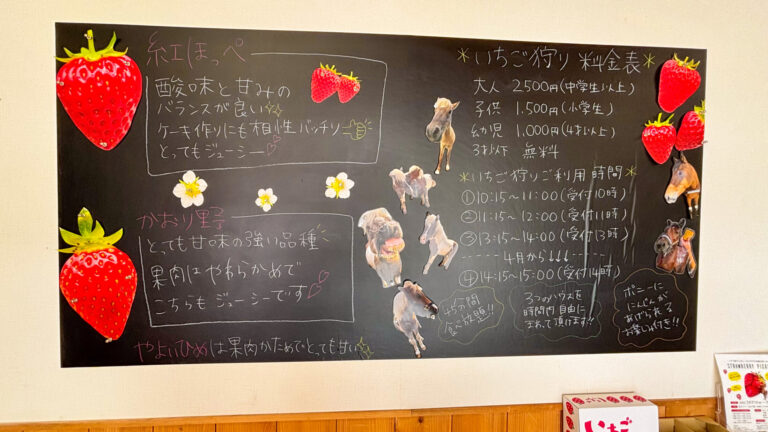 紅ほっぺ
酸味と甘みの
バランスが良い
ケーキ作りにも相性バッチリ
とってもジューシー
かおり野
とっても甘味の強い品種
果肉はやわらかめで
こちらもジューシーです
やよいひめは果肉かためでとっても甘い
*いちご狩り 料金表*
大人 2500円(中学生以上)
子供 1.500円(小学生)
幼児 1.000円(4才以上)
3才以下 無料
*いちご狩りご利用時間
①10:15~11:00(受付10時)
②11:15~12:00(受付11時)
③13:15~14:00(受付13時)
-----4月から↓↓↓-----
④14:15~15:00(受付14時)
45分間
食べ放題!!
3つのハウスを
時間内自由に
まわって頂けます!!
ポニーに
にんじんが
あげられる
お楽しみ付き!!
STRAWBERRY PICKING
いちご